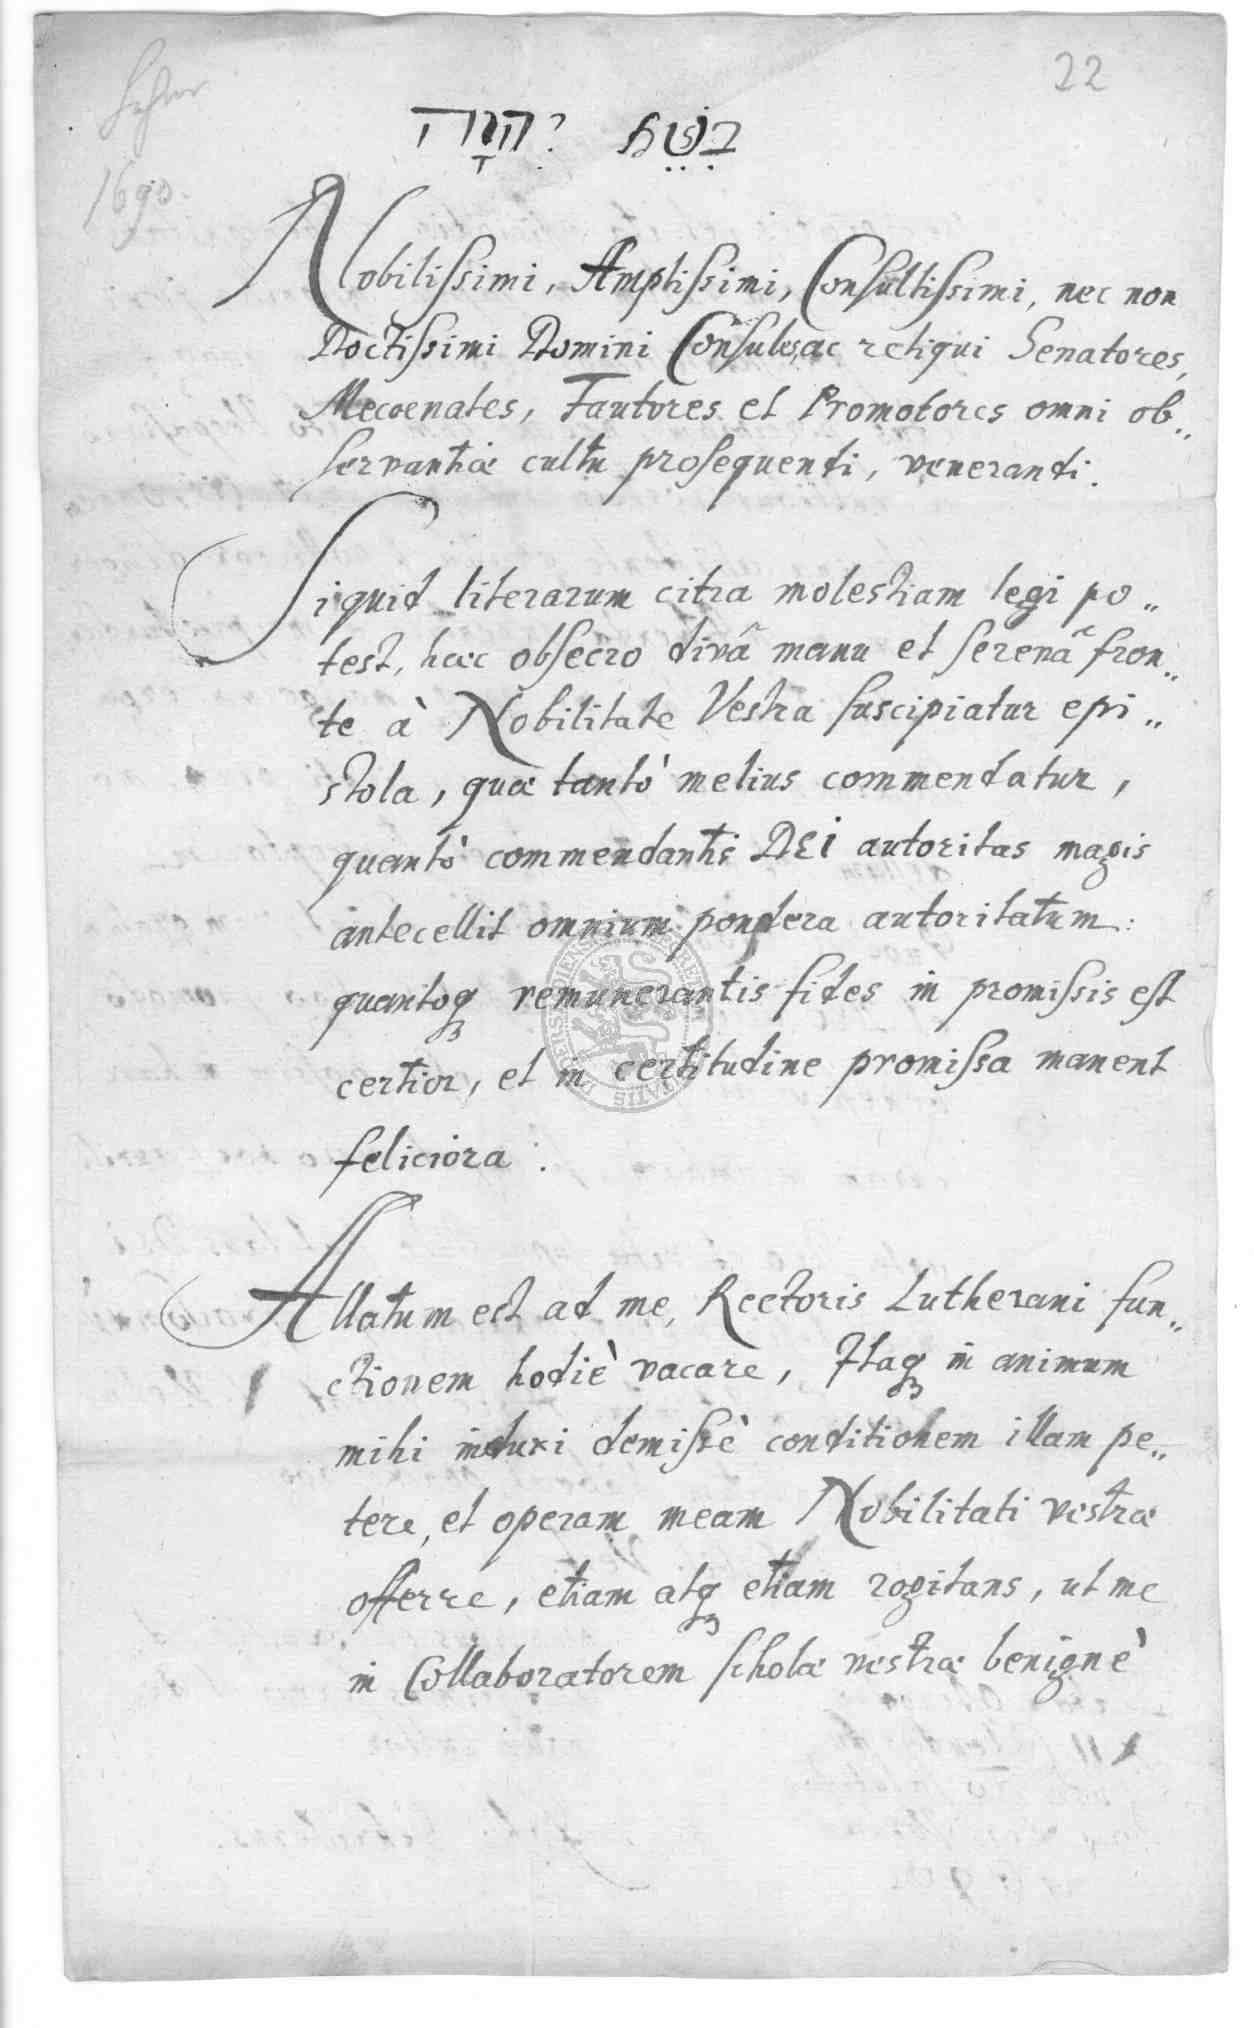 22
1690.
בְּשֵׁם יְהֹוָה
Nobilissimi, Amplissimi, Consultissimi, nec non
Doctissimi Domini Consules, ac reliqui Senatores,
Mecoenates, Fautores et Promotores omni ob„
servantiæ cultu prosequendi, venerandi.
Siquid literarum citra molestiam legi po„
test, haec obsecro divâ manu et serenâ fron„
te à Nobilitate Vestra suscipiatur epi„
stola, quæ tantò melius commendatur,
quantò commendantis DEI autoritas magis
antecellit omnium pondera autoritatum:
quantoq₃ remunerantis fides in promissis est
certior, et in certitudine promissa manent
feliciora.
Allatum est ad me, Rectoris Lutherani fun„
ctionem hodiè vacare, Itaq₃ in animum
mihi induxi demissè conditionem illam pe„
tere, et operam meam Nobilitati vestræ
offerre, etiam atq₃ etiam rogitans, ut me
in Collaboratorem scholæ vestræ benignè